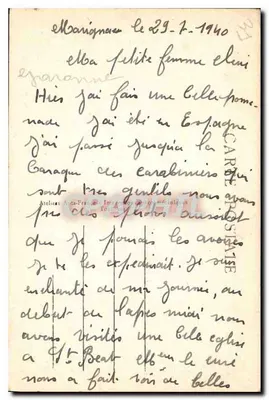 Marignac le 29-7-1940
Ma petite femme chérie
Hier j'ai fais une belle prome-
nade j'ai été en Espagne
j'ai passé jusqu'a la
baraque des carabiniers qui
sont tres gentils nous avons
pris des photos aussitot
que je pourrais les avoires
je te les expedierait. Je suis
enchanté de ma journée, au
debut de l'apres midi nous
avons visités une belle eglise
a St Beat Mr le curé
nous a fait voir de belles
CARTE POSTALE